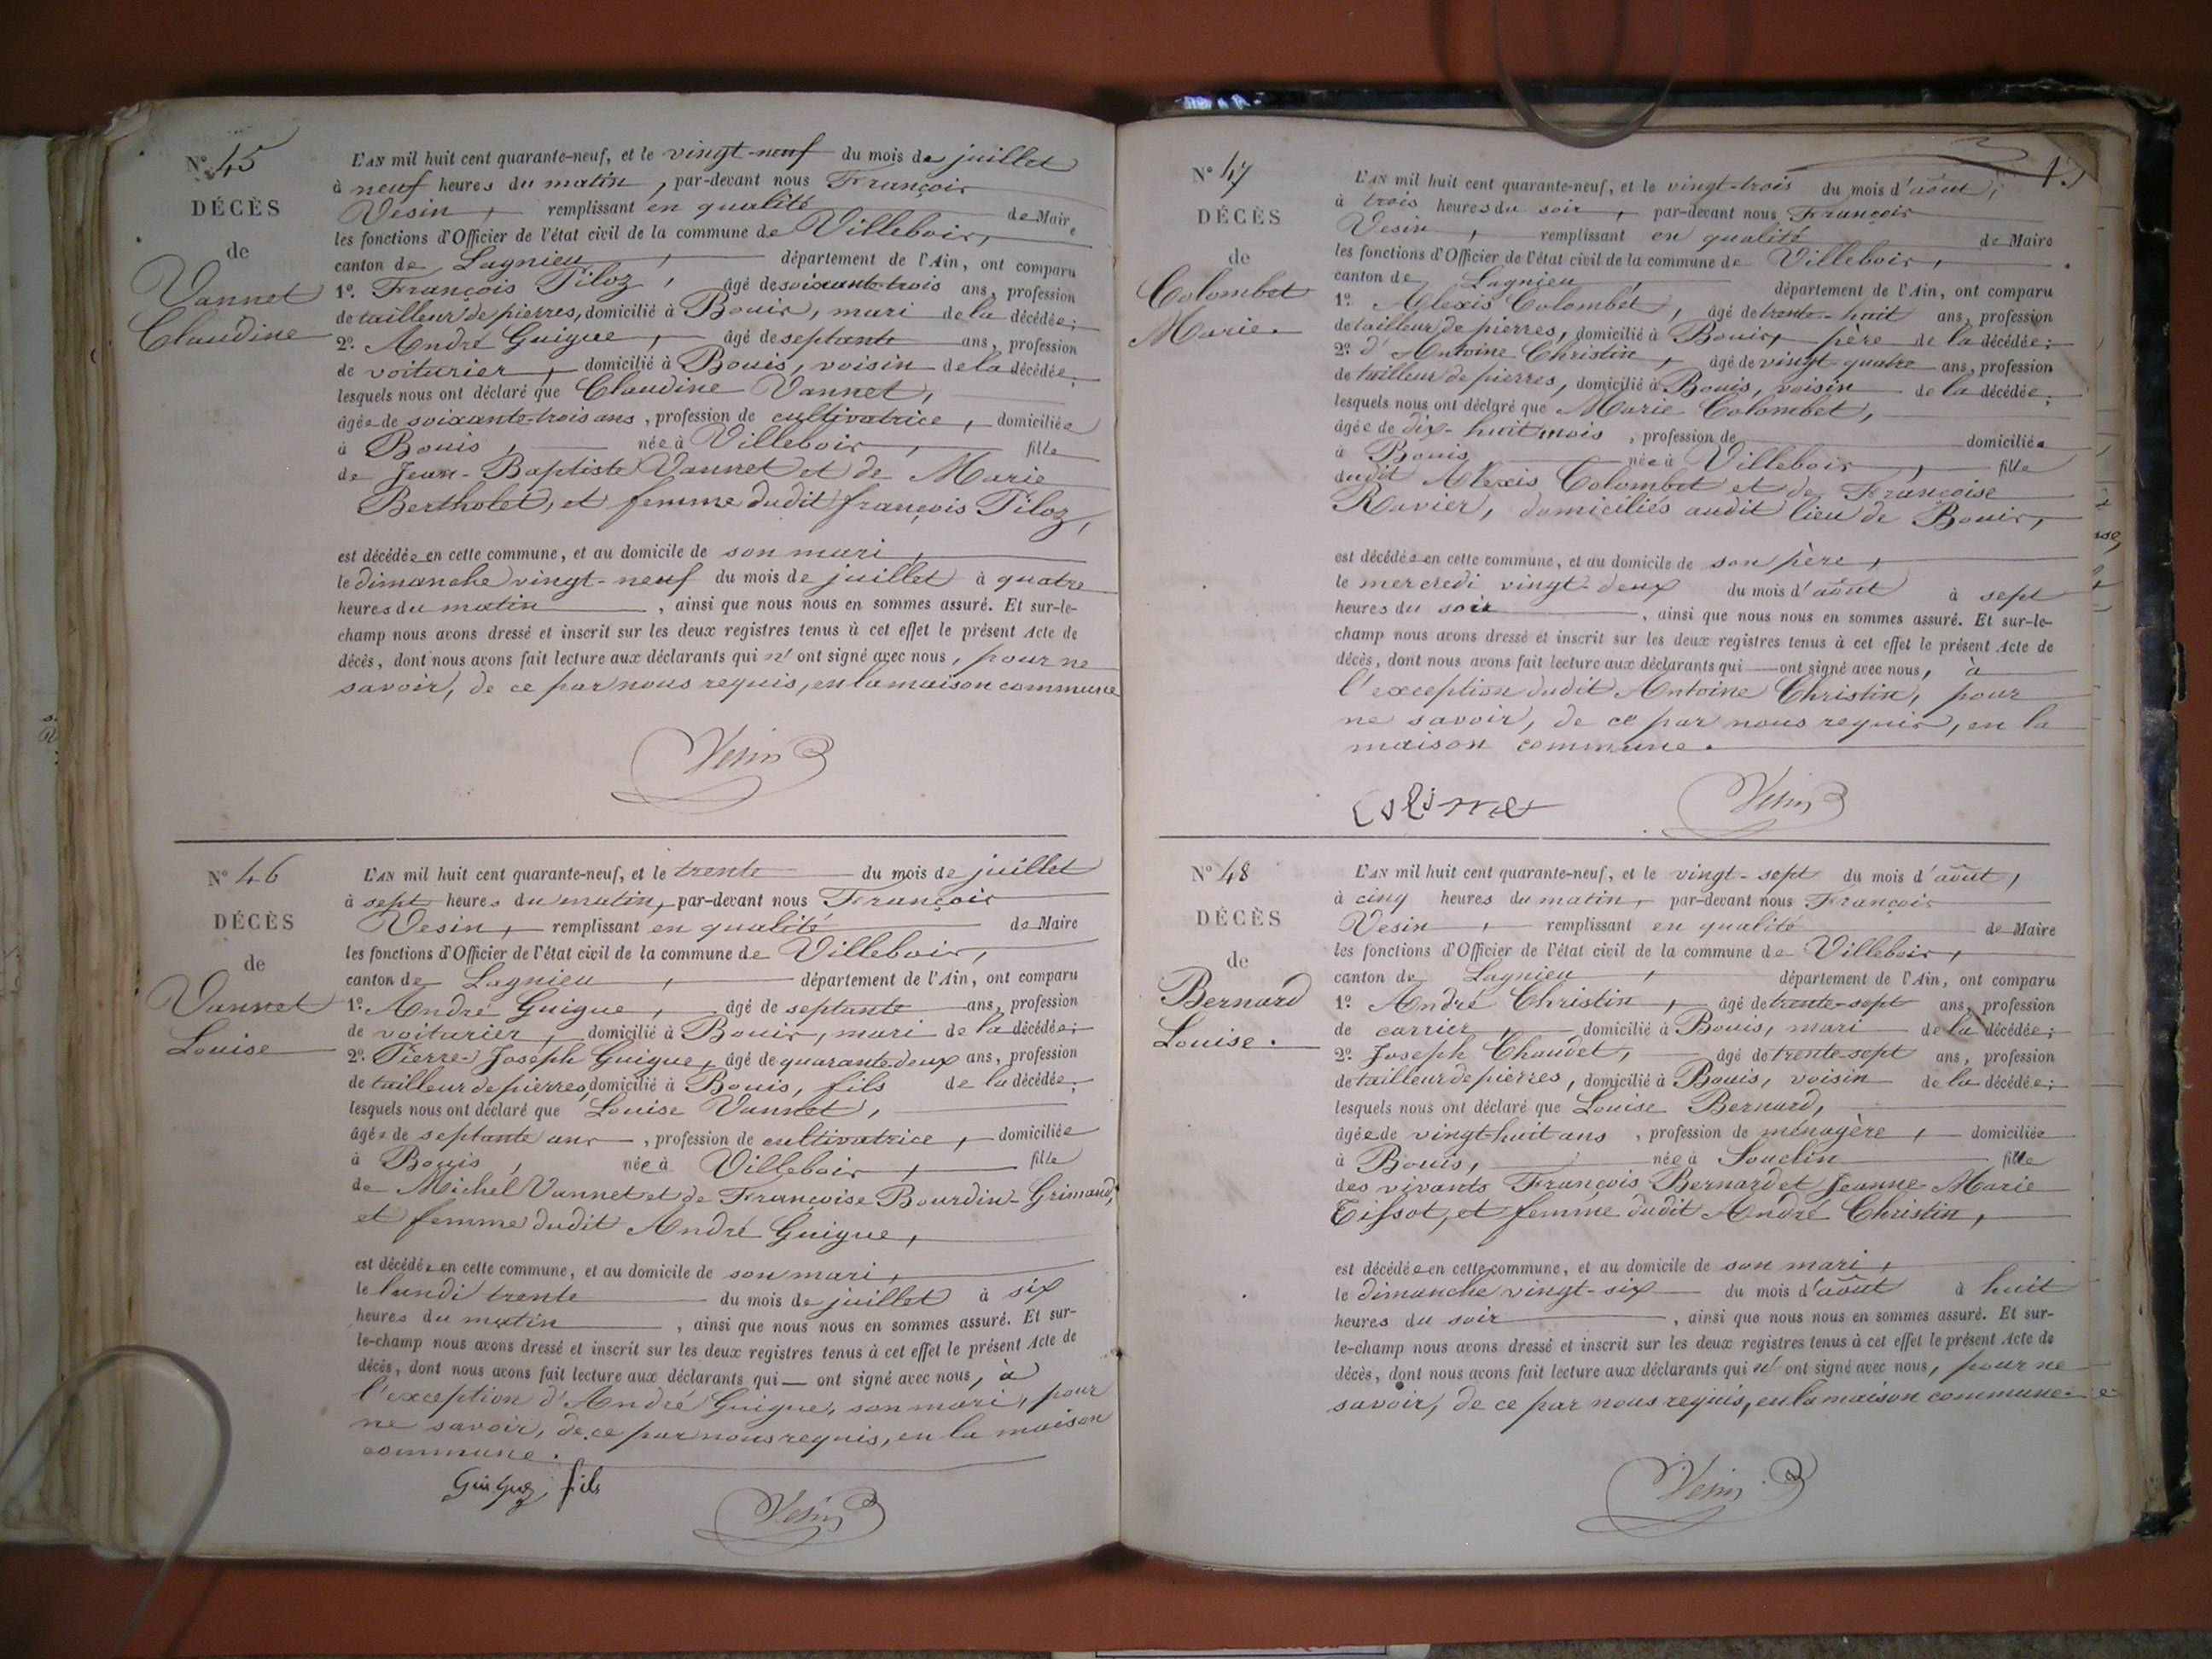 N.º 45
DÉCÈS
de
Vannet
Claudine
L'AN mil huit cent quarante-neuf, et le vingt-neuf du mois de juillet
à neuf heures du matin, par-devant nous François
Vesin, remplissant en qualité de Maire
les fonctions d'Officier de l'état civil de la commune de Villebois,
canton de Lagnieu, département de l'Ain, ont comparu
1º. François Tiloz, âgé de soixante-trois ans, profession
de tailleur de pierres, domicilié à Bouis, mari de la décédée;
2º. André Guigue, âgé de septante ans, profession
de voiturier, domicilié à Bouis, voisin de la décédée,
lesquels nous ont déclaré que Claudine Vannet,
âgée de soixante-trois ans, profession de cultivatrice, domiciliée
à Bouis, née à Villebois, fille
de Jean-Baptiste Vannet et de Marie
Bertholet, et femme dudit françois Tiloz,
est décédée en cette commune, et au domicile de son mari,
le dimanche vingt-neuf du mois de juillet à quatre
heures du matin, ainsi que nous nous en sommes assuré. Et sur-le-
champ nous avons dressé et inscrit sur les deux registres tenus à cet effet le présent Acte de
décès, dont nous avons fait lecture aux déclarants qui n'ont signé avec nous, pour ne
savoir, de ce par nous requis, en la maison commune
Vesin
Nº 46
DÉCÈS
de
Vannet
Louise
L'AN mil huit cent quarante-neuf, et le trente du mois de juillet
à sept heures du matin, par-devant nous François
Vesin, remplissant en qualité de Maire
les fonctions d'Officier de l'état civil de la commune de Villebois,
canton de Lagnieu, département de l'Ain, ont comparu
1º. André Guigue, âgé de septante ans, profession
de voiturier, domicilié à Bouis, mari de la décédée;
2º. Pierre-Joseph Guigue, âgé de quarante-deux ans, profession
de tailleur de pierres, domicilié à Bouis, fils de la décédée,
lesquels nous ont déclaré que Louise Vannet,
âgée de septante ans, profession de cultivatrice, domiciliée
à Bouis, née à Villebois, fille
de Michel Vannet et de Françoise Bourdin-Grimaud,
et femme dudit André Guigue,
est décédée en cette commune, et au domicile de son mari,
le lundi trente du mois de juillet à six
heures du matin, ainsi que nous nous en sommes assuré. Et sur-
le-champ nous avons dressé et inscrit sur les deux registres tenus à cet effet le présent Acte de
décès, dont nous avons fait lecture aux déclarants qui ont signé avec nous, à
l'exception d'André Guigue, son mari, pour
ne savoir, de ce par nous requis, en la maison
commune.
Guigue fils
Vesin
Nº 47
DÉCÈS
de
Colombet
Marie.
L'AN mil huit cent quarante-neuf, et le vingt-trois du mois d'août,
à trois heures du soir, par-devant nous François
Vesin, remplissant en qualité de Maire
les fonctions d'Officier de l'état civil de la commune de Villebois,
canton de Lagnieu, département de l'Ain, ont comparu
1º. Alexis Colombet, âgé de trente-huit ans, profession
de tailleur de pierres, domicilié à Bouis, père de la décédée;
2º. d'Antoine Christin, âgé de vingt-quatre ans, profession
de tailleur de pierres, domicilié à Bouis, voisin de la décédée,
lesquels nous ont déclaré que Marie Colombet,
âgée de dix-huit mois, profession de domiciliée
à Bouis, née à Villebois, fille
dudit Alexis Colombet et de Françoise
Ravier, domiciliés audit lieu de Bouis,
est décédée en cette commune, et au domicile de son père,
le mercredi vingt-deux du mois d'août à sept
heures du soir, ainsi que nous nous en sommes assuré. Et sur-le-
champ nous avons dressé et inscrit sur les deux registres tenus à cet effet le présent Acte de
décès, dont nous avons fait lecture aux déclarants qui ont signé avec nous, à
l'exception dudit Antoine Christin, pour
ne savoir, de ce par nous requis, en la
maison commune.
Vesin
Nº 48
DÉCÈS
de
Bernard
Louise.
L'AN mil huit cent quarante-neuf, et le vingt-sept du mois d'août,
à cinq heures du matin, par-devant nous François
Vesin, remplissant en qualité de Maire
les fonctions d'Officier de l'état civil de la commune de Villebois,
canton de Lagnieu, département de l'Ain, ont comparu
1º. André Christin, âgé de trente-sept ans, profession
de carrier, domicilié à Bouis, mari de la décédée;
2º. Joseph Chaudet, âgé de trente-sept ans, profession
de tailleur de pierres, domicilié à Bouis, voisin de la décédée;
lesquels nous ont déclaré que Louise Bernard,
âgée de vingt-huit ans, profession de ménagère, domiciliée
à Bouis, née à Souclin fille
des vivants François Bernard et Jeanne-Marie
Tissot, et femme dudit André Christin,
est décédée en cette commune, et au domicile de son mari,
le dimanche vingt-six du mois d'août à huit
heures du soir, ainsi que nous nous en sommes assuré. Et sur-
le-champ nous avons dressé et inscrit sur les deux registres tenus à cet effet le présent Acte de
décès, dont nous avons fait lecture aux déclarants qui n'ont signé avec nous, pour ne
savoir, de ce par nous requis, en la maison commune.
Vesin